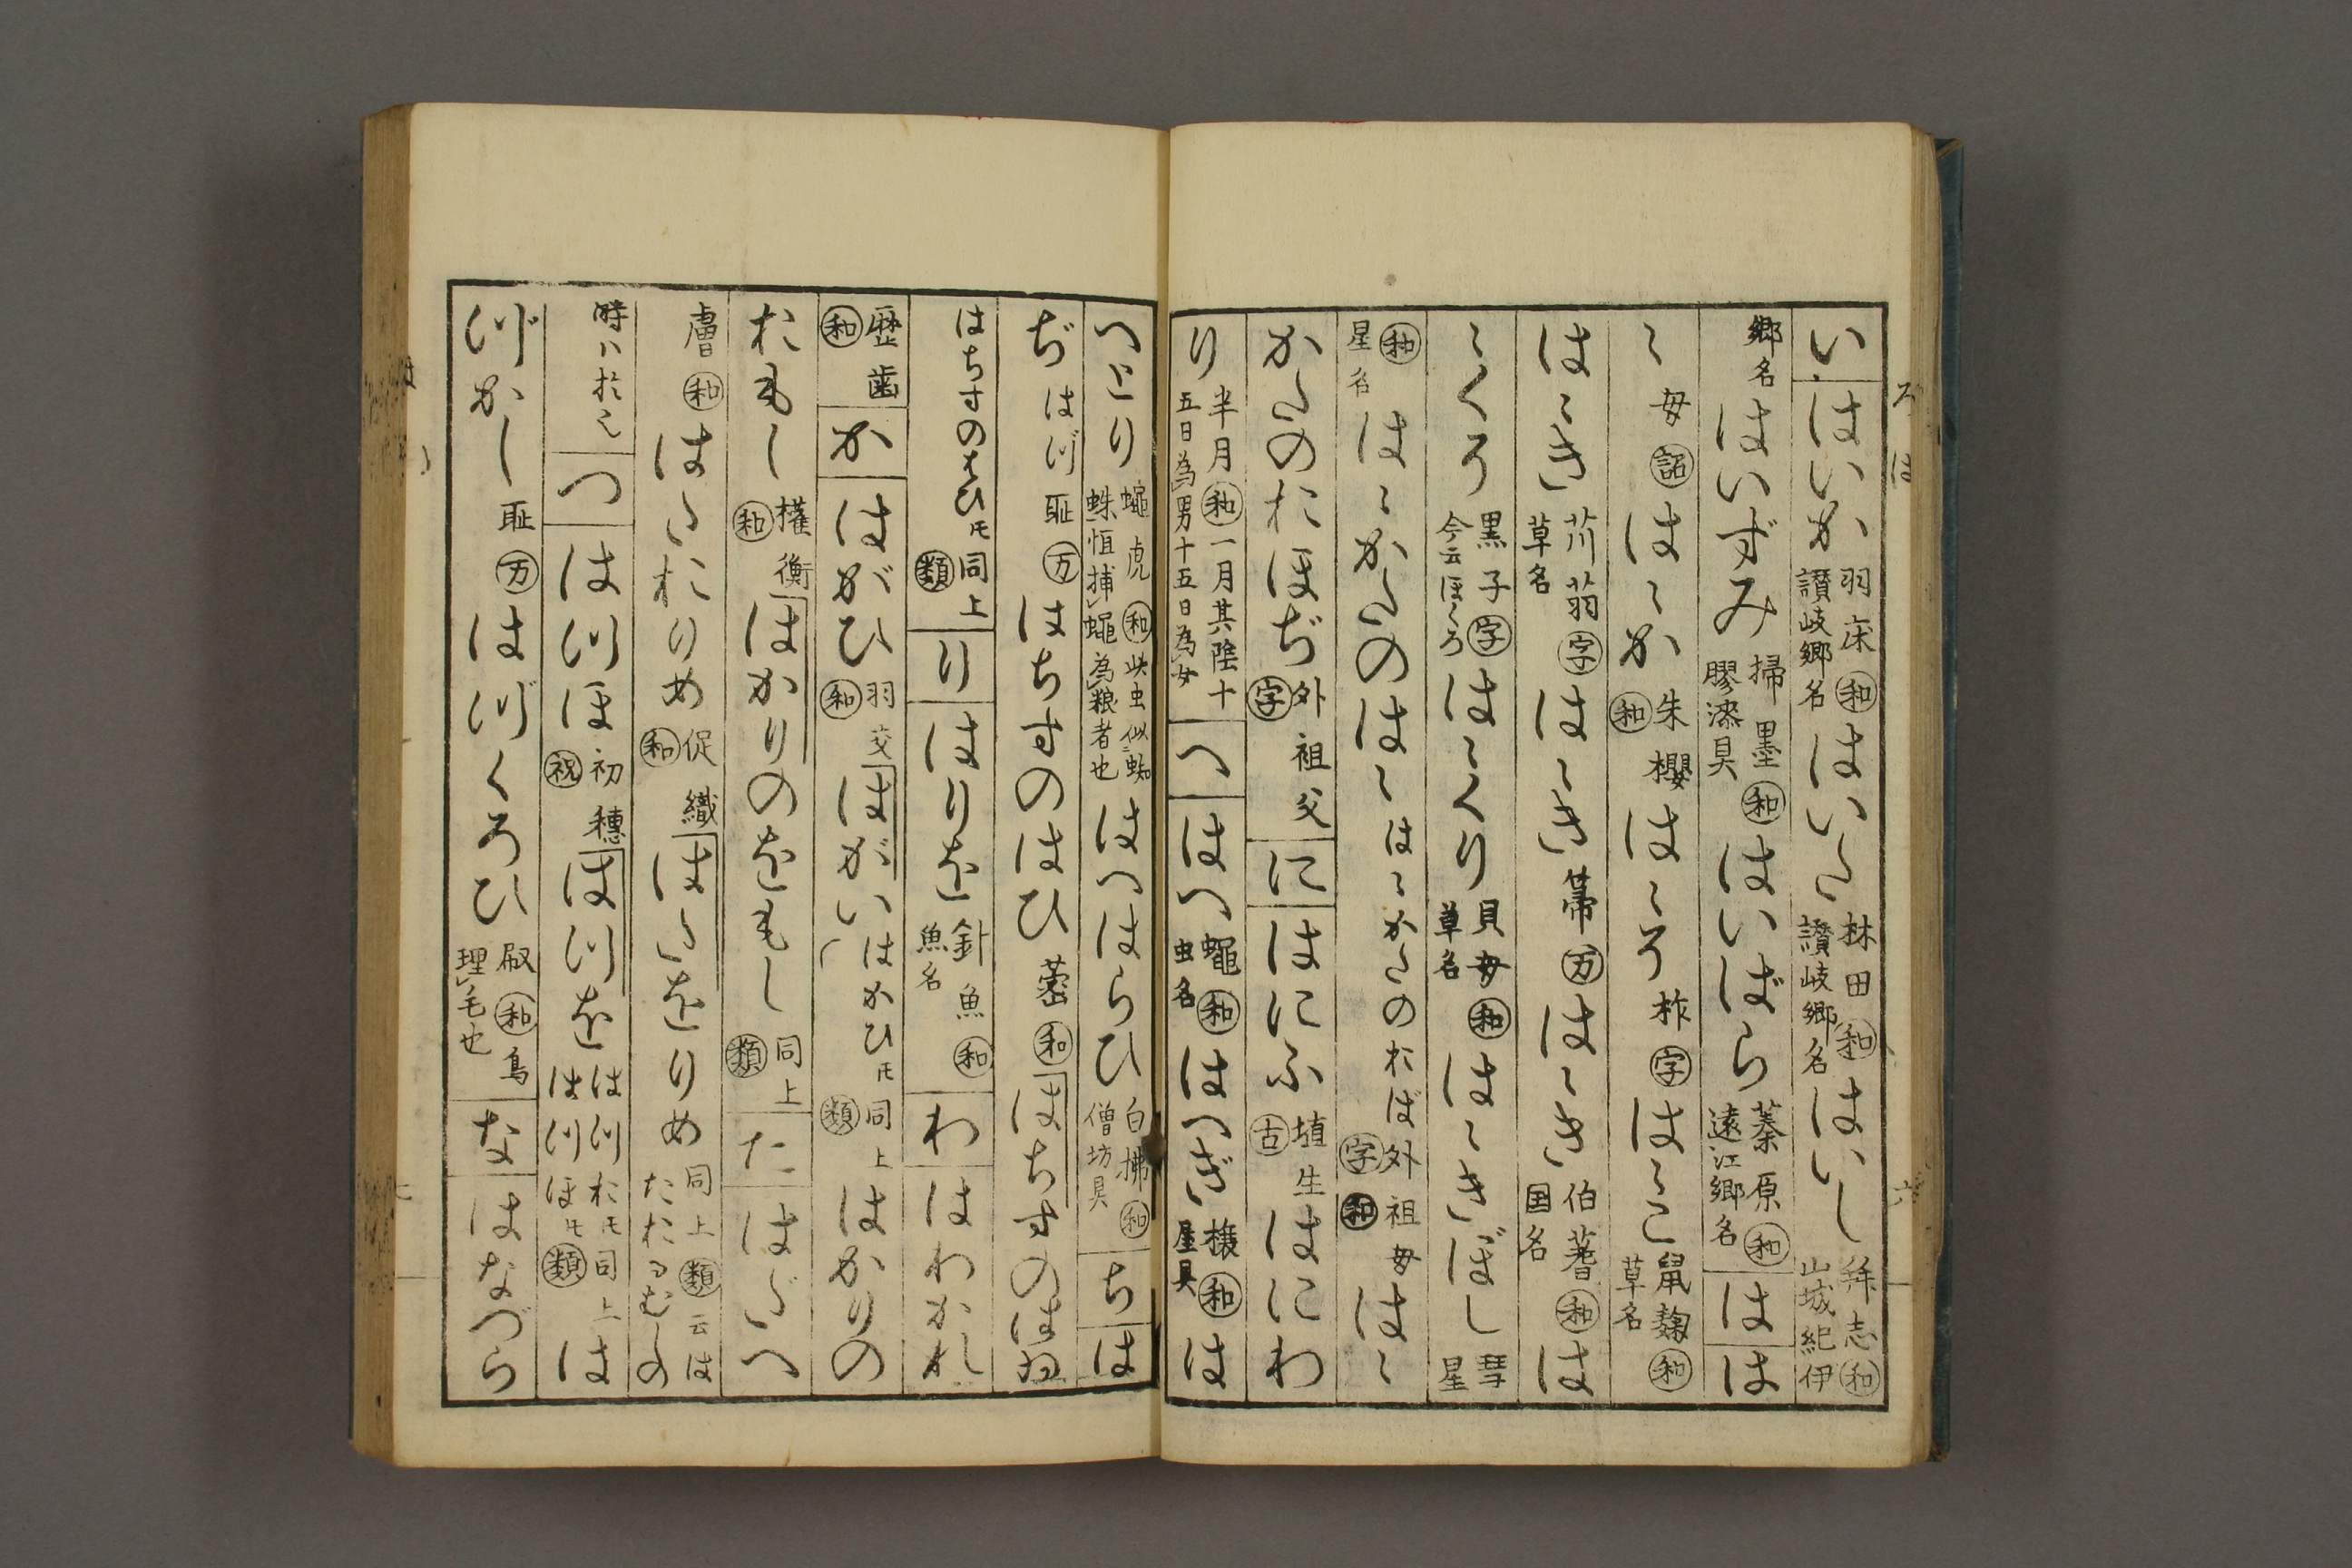 い はいか 羽床㊞和 讃岐郷名 はいた 林田 和 讃岐郷名 はいし 拜志 和 山城紀伊
郷名 はいずみ 掃墨 和 膠漆具 はいばら 蓁原 和 遠江郷名 は は
ゝ 母 詔 はゝか 朱櫻 和 はゝそ 柞 字 はゝこ 鼠麹 和 草名
はゝき 草名 字 はゝき 箒 万 はゝき 伯蓍 和 国名 は
ゝくろ 黒子 字 今云ほくろ はゝくり 貝母 和 草名 はゝきぼし 彗星
和 星名 はゝかたのはゝ はゝかたのおば 外祖母 字 和 はゝ
かたのおほぢ 外祖父 字 に はにふ 埴生 古 はにわ
り 半月 和 一月其陰十五日為男十五日為女 へ はへ 蠅 和 虫名 はへぎ 榱 和 屋具 は
へとり 蠅虎 和 此虫似蜘蛛恒捕蠅為粮者也 はへはらひ 白拂 和 僧坊具 ち は
ぢ はづ 耻 万 はちすのはひ 和 はちすのはゐ
はちすのはひ 同上 類 り はりを 針魚 和 魚名 わ はわかれ
歴歯 和 か はがひ 羽交 和 はがい はかひ 同上 類 はかりの
おもし 權衡 和 はかりのをもし 同上 類 た はだへ
膚 和 はたおりめ 促織 和 はたをりめ 同上 類 云はたおるむしの
時ハ於也 つ はつほ 初穗 祝 はつを はつお 同上 はつほ 類 は
づかし 耻 万 はづくろひ 和 鳥理毛也 な はなづら